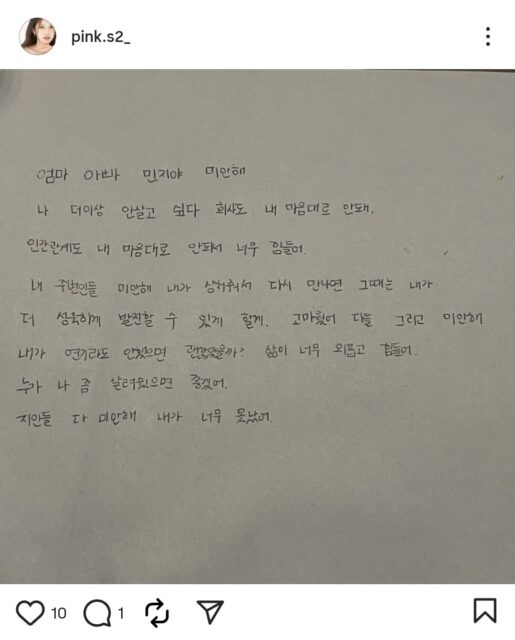 pink.s2_
엄마 아빠 민지야 미안해
나 더이상 안살고 싶다 회사도 내 마음대로 안돼.
인간관계도 내 마음대로 안돼서 너무 힘들어.
내 주변인들 미안해 내가 상처줘서 다시 만나면 그때는 내가
더 성숙하게 발전할 수 있게 할게. 고마웠어 다들 그리고 미안해
내가 연기라도 안했으면 괜찮았을까? 삶이 너무 외롭고 힘들어.
누가 나 좀 살려줬으면 좋겠어.
지인들 다 미안해 내가 너무 못났어.
10 1